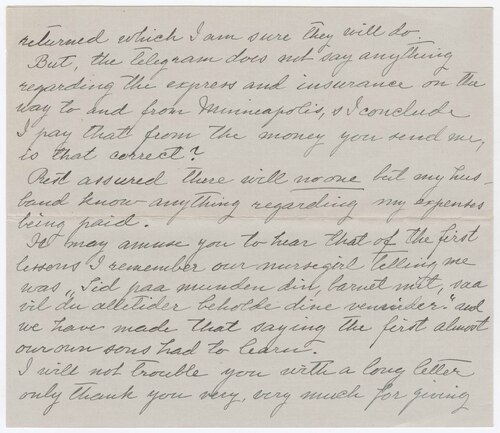 returned which I am sure they will do.
But, the telegram does not say anything
regarding the express and insurance on the
way to and from Minneapolis, s I conclude
I pay that from the money you send me,
is that correct?
Rest assured there will no one but my hus-
band know anything regarding my expenses
being paid.
It may amuse you to hear that of the first
lessons I remember our nursegirl telling me
was, "Sid paa munden din, barnet mit, saa
vil du altitider beholde dine venner." and
we have made that saying the first almost
our own sons had to learn.
I will not trouble you with a long letter
only thank you very, very much for giving